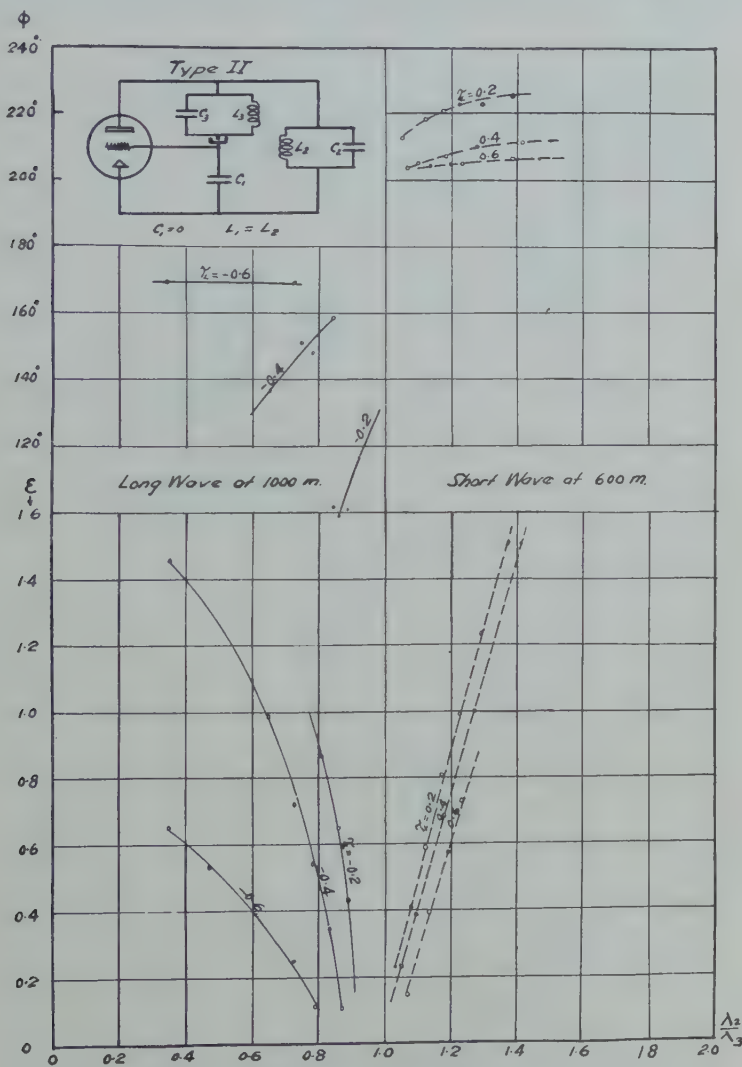 φ
240°
220°
200°
180°
160°
140°
120°
Type II
C₃
L₃
L₂
C₂
C₁
C₁=0 L₁=L₂
τ=0.2
0.4
0.6
τ=-0.6
-0.4
-0.2
ε
Long Wave at 1000 m.
Short Wave at 600 m.
1.6
1.4
1.2
1.0
0.8
0.6
0.4
0.2
0
-0.6
-0.4
τ=-0.2
τ=0.2
0.4
0.6
0 0.2 0.4 0.6 0.8 1.0 1.2 1.4 1.6 1.8 2.0
λ₂/λ₃